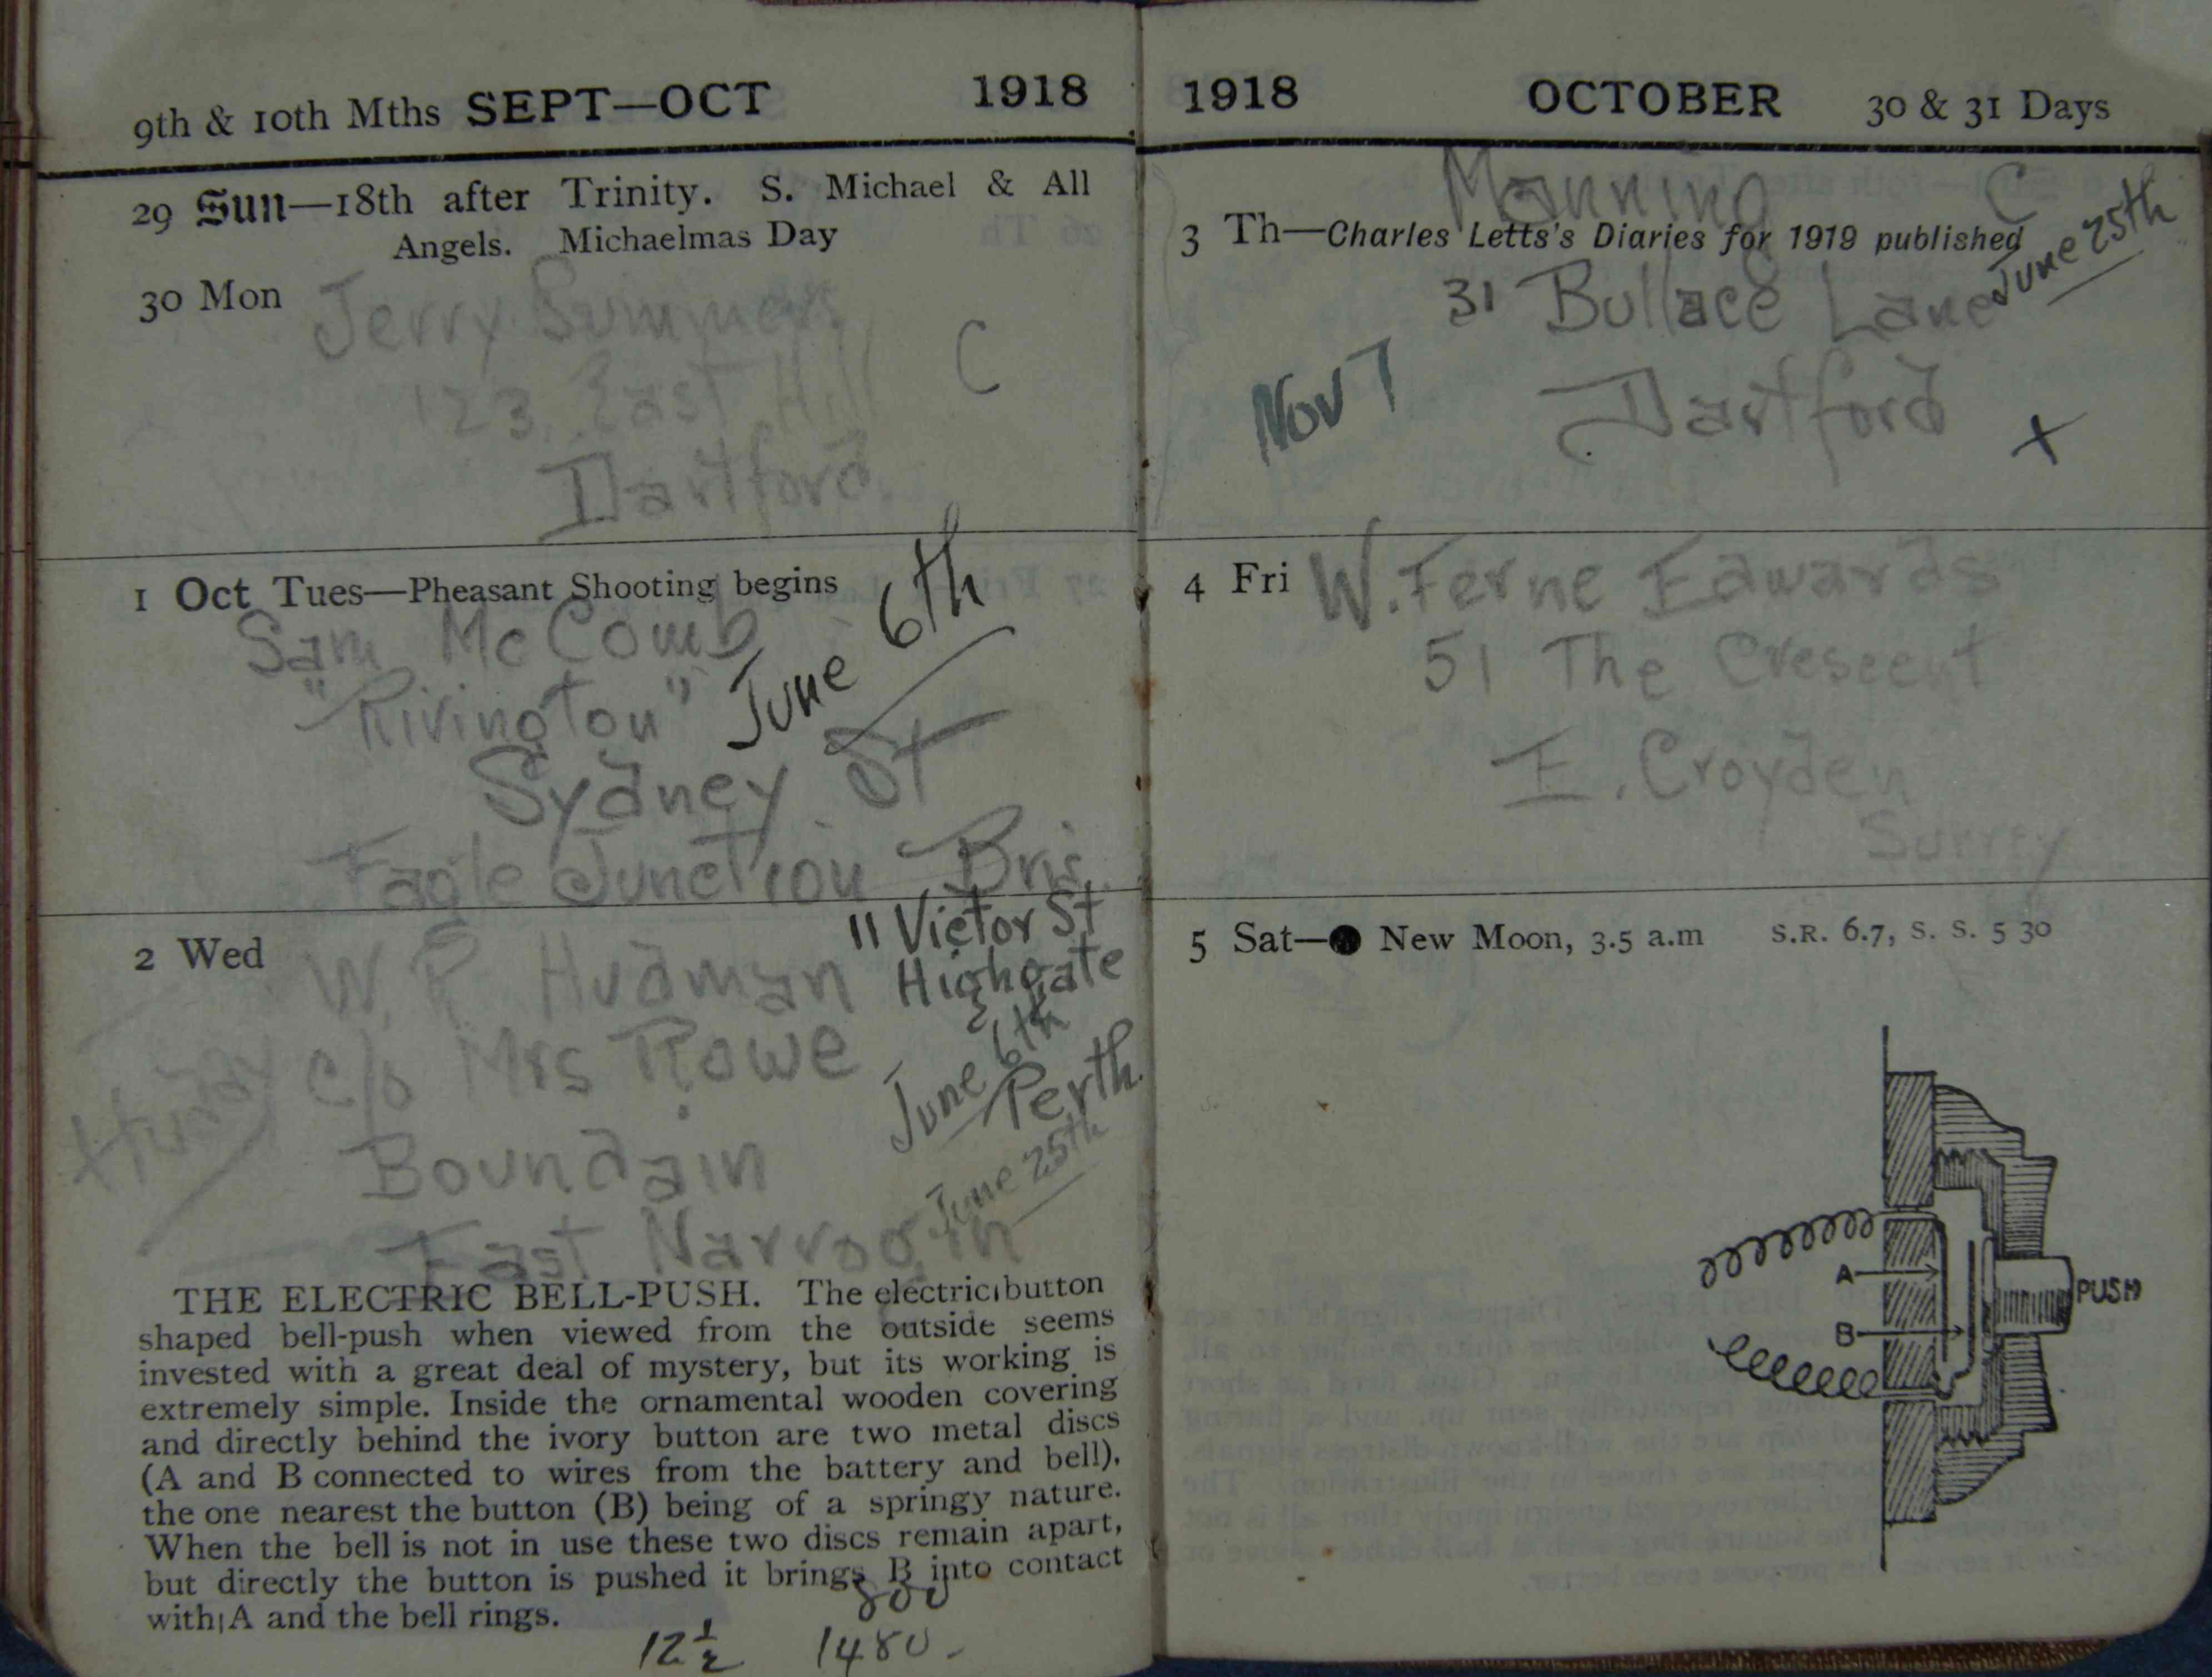 9th & 10th Mths SEPT—OCT 1918
29 Sun—18th after Trinity. S. Michael & All
Angels. Michaelmas Day
30 Mon
Jerry Summers
C
123 East Hill
Dartford
1 Oct Tues—Pheasant Shooting begins
Sam McComb
"Rivington"
June 6th
Sydney St
Eagle Junction Bris.
2 Wed
W. P. Hudman
11 Victor St
Highgate
c/o Mrs Rowe
June 6th
Perth.
Boundain
June 25th
East Narrogin
THE ELECTRIC BELL-PUSH. The electric button
shaped bell-push when viewed from the outside seems
invested with a great deal of mystery, but its working is
extremely simple. Inside the ornamental wooden covering
and directly behind the ivory button are two metal discs
(A and B connected to wires from the battery and bell),
the one nearest the button (B) being of a springy nature.
When the bell is not in use these two discs remain apart,
but directly the button is pushed it brings B into contact
with A and the bell rings.
800
12½ 1480-
1918 OCTOBER 30 & 31 Days
Manning C
3 Th—Charles Letts's Diaries for 1919 published
June 25th
31 Bullace Lane
Nov 7
Dartford
X
4 Fri
W. Ferne Edwards
51 The Crescent
E. Croyden
Surrey
5 Sat—● New Moon, 3.5 a.m S.R. 6.7, S. S. 5 30
A
PUSH
B